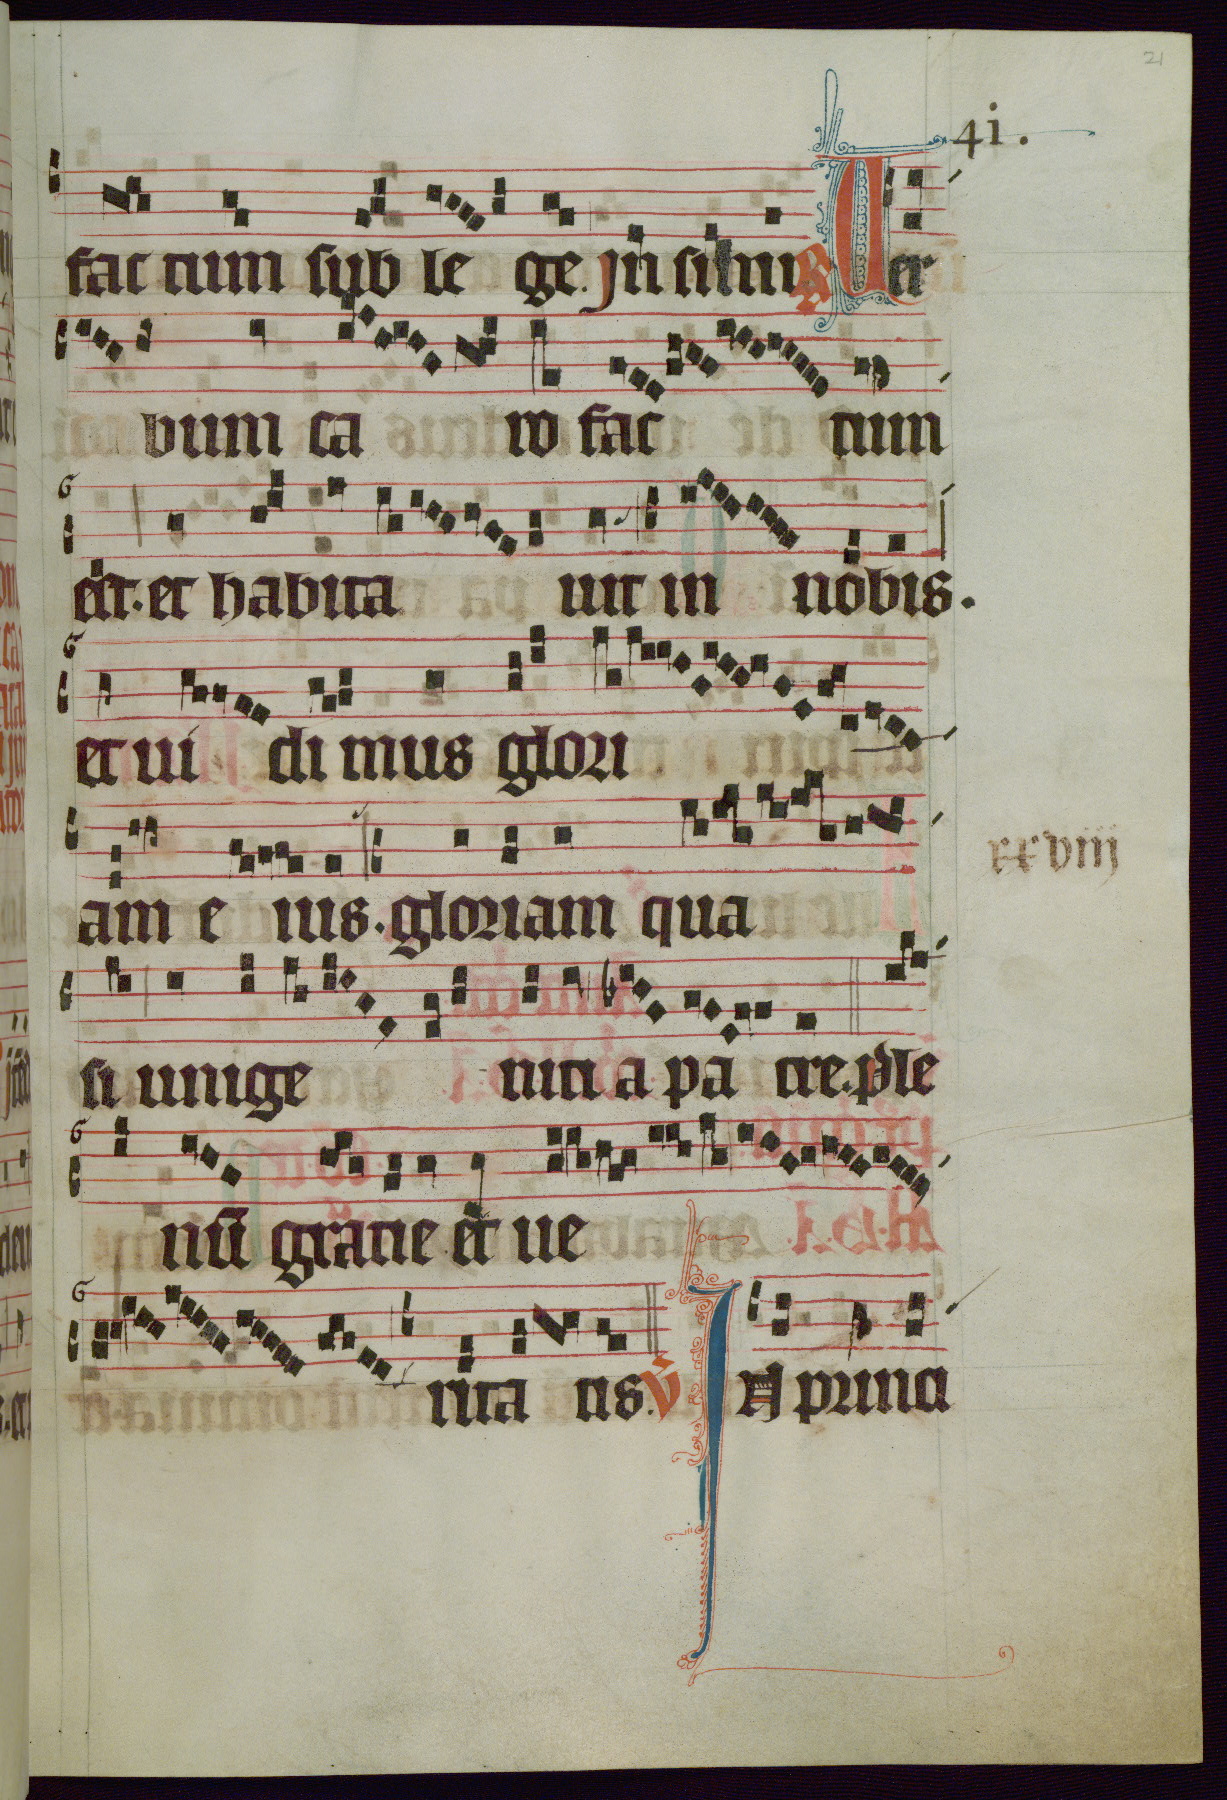 21
41.
fac tum sub le ge. Jn simili R Uer
bum ca ro fac tum
est. et habita uit in nobis.
et ui di mus glori
am e ius. gloriam qua
xxviii
si unige niti a pa tre. ple
nū gratie et ue
rita tis. v̄ IN princi